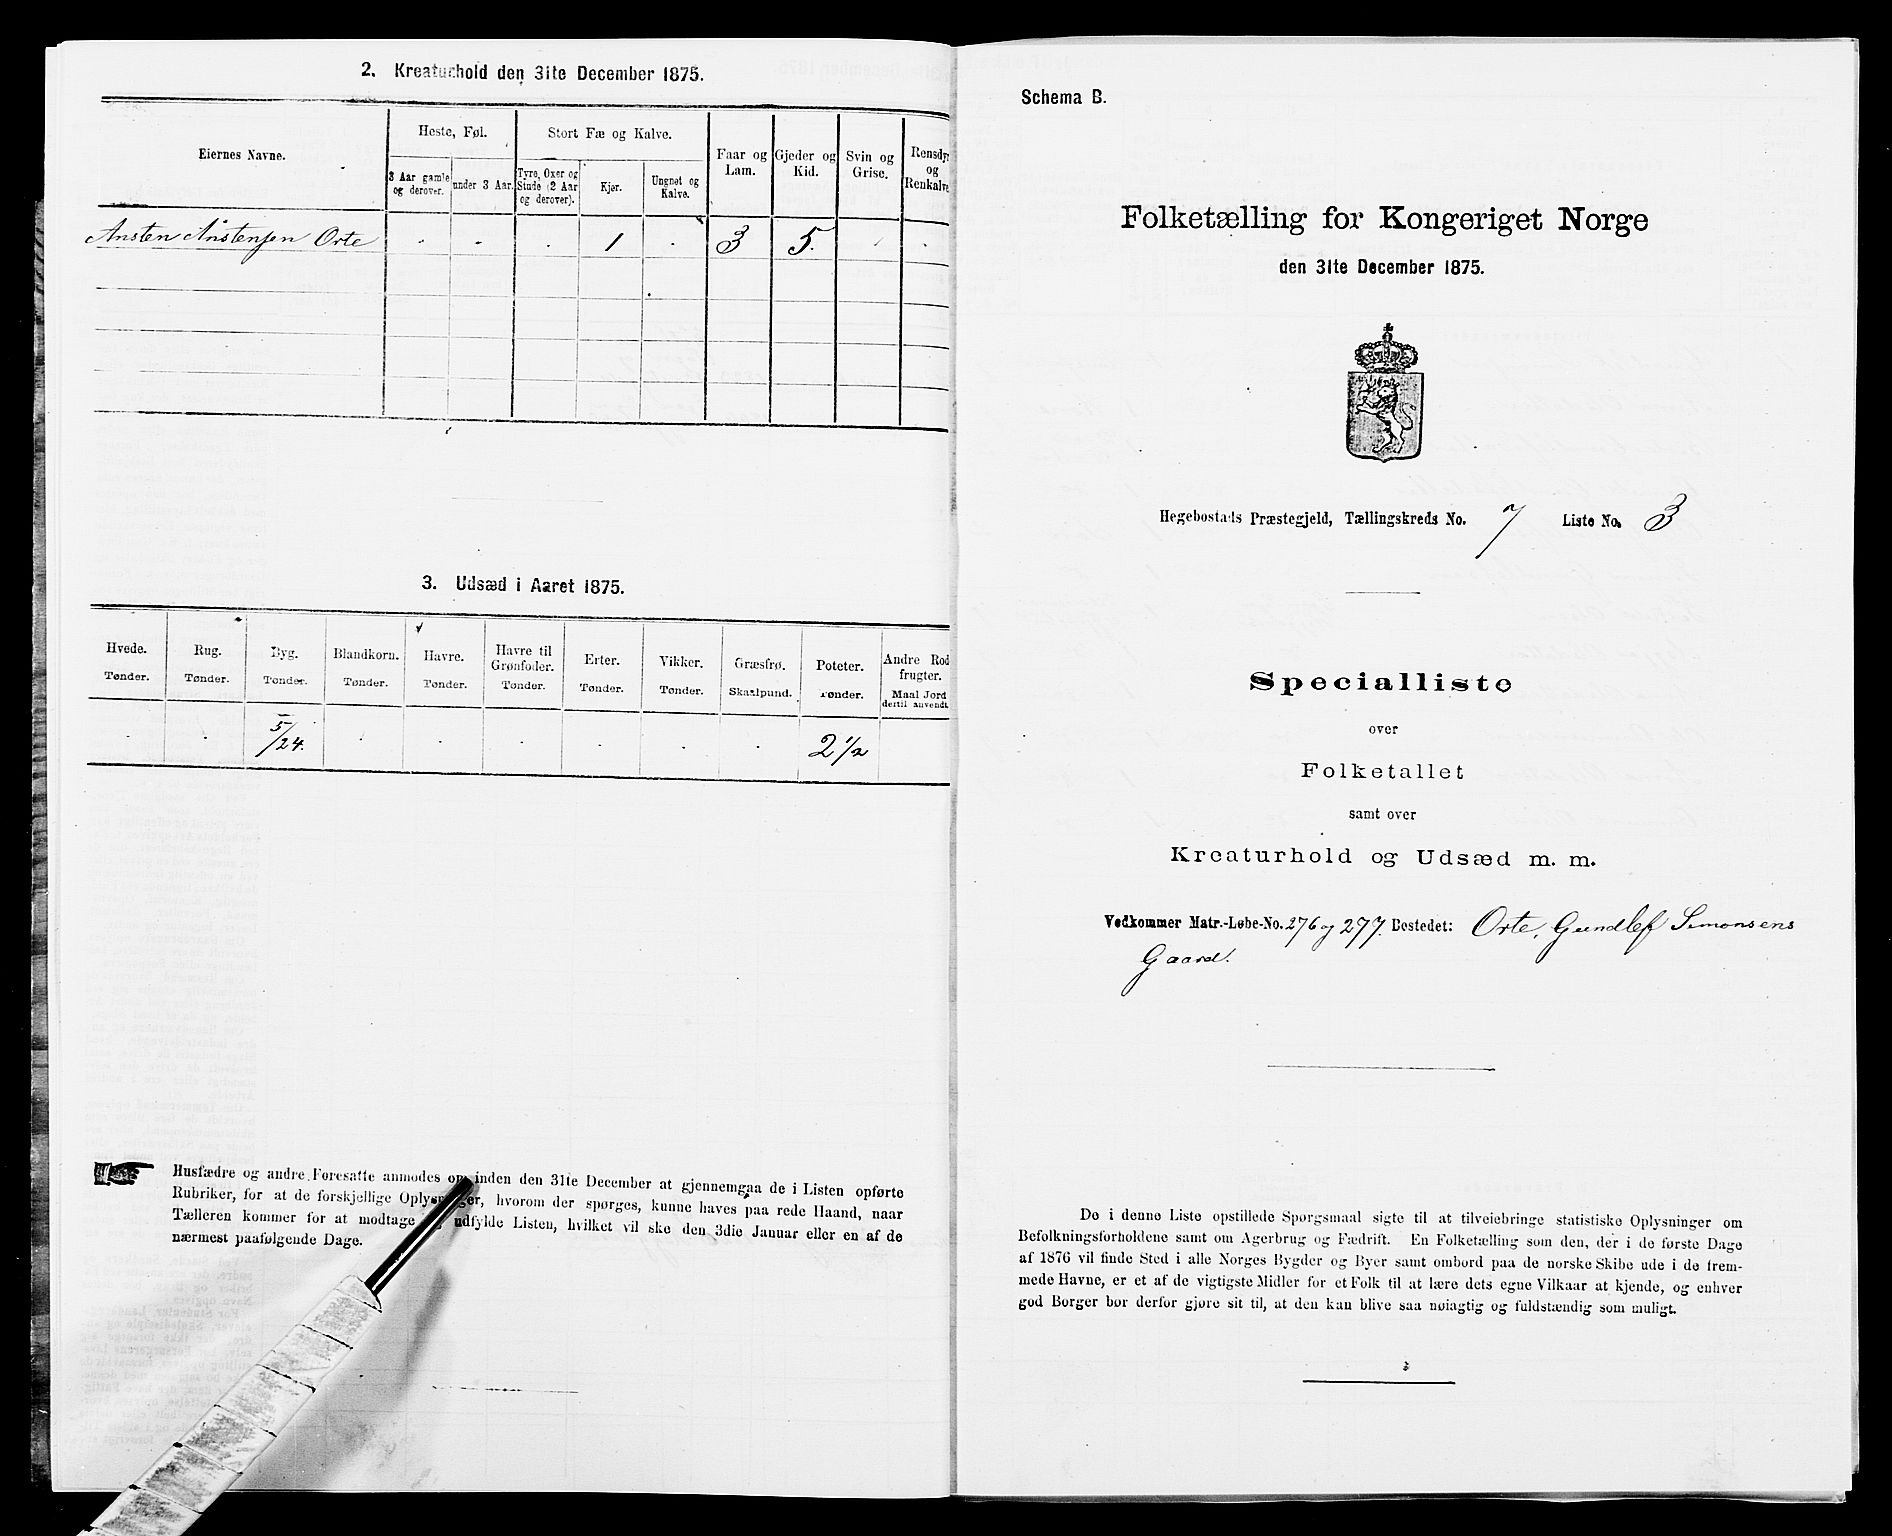 2. Kreaturhold den 31te December 1875.
Eiernes Navne.
Heste, Føl.
Stort Fæ og Kalve.
Faar og Lam.
Gjeder og Kid.
Svin og Grise.
Rensdyr og Renkalve
3 Aar gamle og derover.
under 3 Aar.
Tyre, Oxer og Stude (2 Aar og derover).
Kjør.
Ungnøt og Kalve.
Ansten Anstensen Orte . . . 1 . 3 5. . .
3. Udsæd i Aaret 1875.
Hvede. Rug. Byg. Blandkorn. Havre. Havre til Grønfoder. Erter. Vikker. Græsfrø. Poteter. Andre Rodfrugter.
Tønder. Tønder. Tønder. Tønder. Tønder. Tønder. Tønder. Tønder. Skaalpund. Tønder. Maal Jord dertil anvendt.
. . 5/24. . . . . . . 2 1/2
Husfædre og andre Foresatte anmodes om inden den 31te December at gjennemgaa de i Listen opførte
Rubriker, for at de forskjellige Oplysninger, hvorom der spørges, kunne haves paa rede Haand, naar
Tælleren kommer for at modtage og udfylde Listen, hvilket vil ske den 3die Januar eller en af de
nærmest paafølgende Dage.
Schema B.
Folketælling for Kongeriget Norge
den 31te December 1875.
Hegebostads Præstegjeld, Tællingskreds No. 7 Liste No. 3
Specialliste
over
Folketallet
samt over
Kreaturhold og Udsæd m. m.
Vedkommer Matr.-Løbe-No. 276 og 277. Bostedet: Orte, Gundlef Simonsens
Gaard.
De i denne Liste opstillede Spørgsmaal sigte til at tilveiebringe statistiske Oplysninger om
Befolkningsforholdene samt om Agerbrug og Fædrift. En Folketælling som den, der i de første Dage
af 1876 vil finde Sted i alle Norges Bygder og Byer samt ombord paa de norske Skibe ude i de frem-
mede Havne, er et af de vigtigste Midler for et Folk til at lære dets egne Vilkaar at kjende, og enhver
god Borger bør derfor gjøre sit til, at den kan blive saa nøiagtig og fuldstændig som muligt.